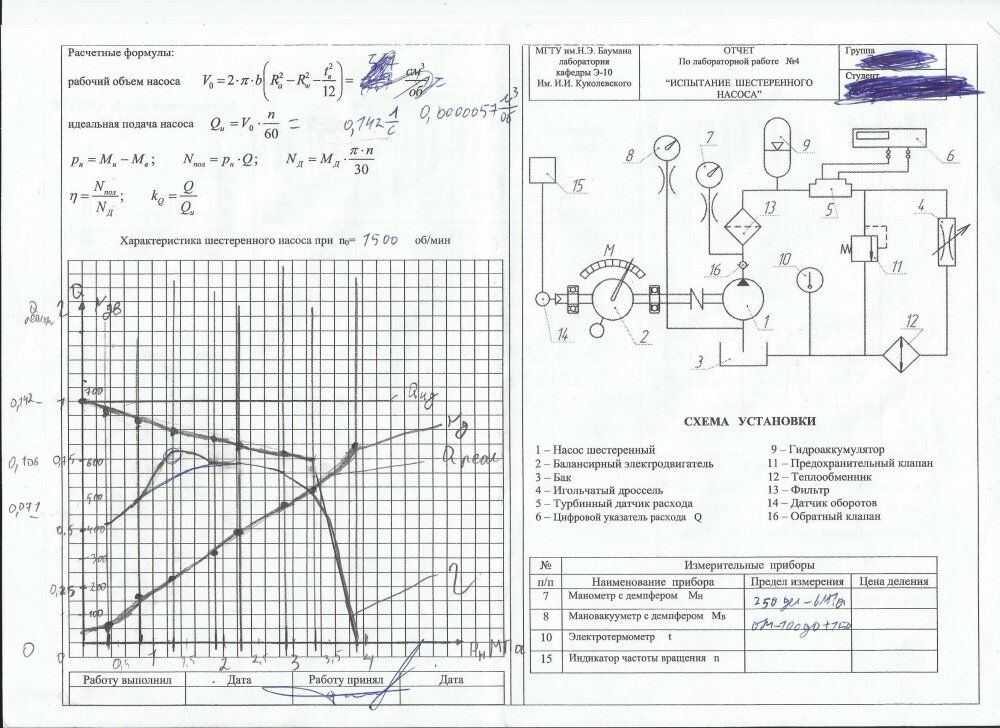 Расчетные формулы:
рабочий объем насоса V₀ = 2·π·b(Rₐ² − R_w² − t_в²/12) = см³/об
идеальная подача насоса Qᵤ = V₀·n/60 = 0,142 л/с
pₙ = Mₙ − Mₑ; Nпол = pₙ·Q; N_Д = M_Д·π·n/30
η = Nпол/N_Д; k_Q = Q/Qᵤ
Характеристика шестеренного насоса при n₀= 1500 об/мин
Q
0,142
0,106
0,071
0
1
0,5
0,25
0
700
600
500
400
300
200
100
Q ид
Nд
Q реал
η
0,5 1 2 2,5 3 3,5 4 Pн МПа
Работу выполнил Дата Работу принял Дата
МГТУ им.Н.Э. Баумана
лаборатория
кафедры Э-10
Им. И.И. Куколевского
ОТЧЕТ
По лабораторной работе №4
“ИСПЫТАНИЕ ШЕСТЕРЕННОГО
НАСОСА”
Группа
Студент
7
8
9
6
15
13
5
4
М
10
11
16
14
2
1
3
12
СХЕМА УСТАНОВКИ
1 – Насос шестеренный
2 – Балансирный электродвигатель
3 – Бак
4 – Игольчатый дроссель
5 – Турбинный датчик расхода
6 – Цифровой указатель расхода Q
9 – Гидроаккумулятор
11 – Предохранительный клапан
12 – Теплообменник
13 – Фильтр
14 – Датчик оборотов
16 – Обратный клапан
№ п/п Измерительные приборы
Наименование прибора Предел измерения Цена деления
7 Манометр с демпфером Мн 250 дел – 6МПа
8 Мановакууметр с демпфером Мв от -100 до +150
10 Электротермометр t
15 Индикатор частоты вращения n